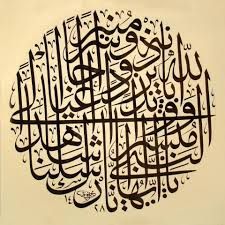 يا أيها النبي إنا أرسلناك شاهدا ومبشرا ونذيرا وداعيا إلى الله بإذنه وسراجا منيرا
١٤٢٨